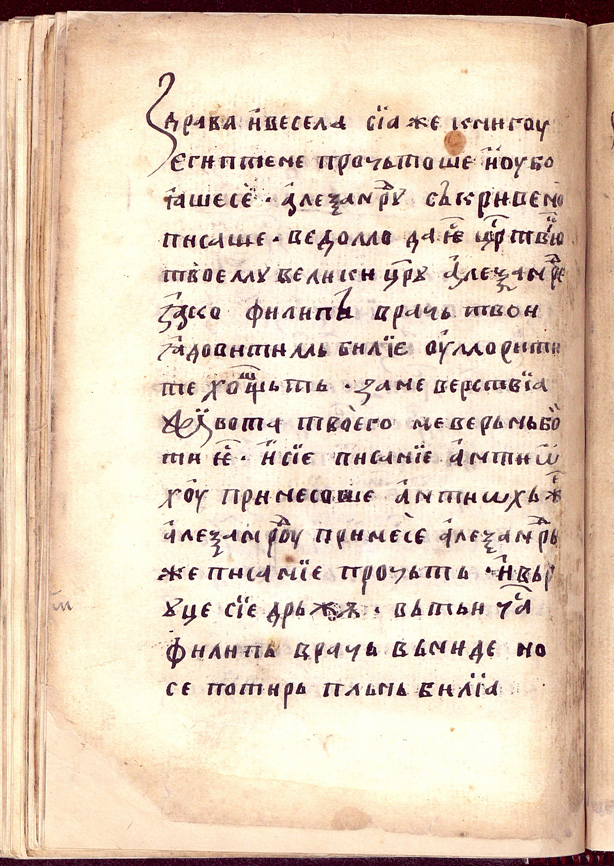 здрава и҆весела сїа же кни́гоу
є҆гипте́не прочьтоше и҆ оубо
ꙗ҆шесе҆ · а҆леѯан҆дрꙋ съкривено
писаше · ведомо да е҆ цр҃твїю
твоемꙋ велики цр҃ꙋ а҆леѯандре
ꙗ҆ко филипь врачь твои
ꙗ҆довитимь билїе оу҆морити
те хощьть · зане верствїа
живота твоего неверьнь бо
ти е҆ · и҆ сїе писанїе а҆нтиѡ
хоу принесоше а҆нтиѡхь же
а҆леѯандроу принесе а҆леѯандрь
же писанїе прочьть · и҆ вьр
ꙋце сїе дрьжѫ · вьтьи ча
филипь врачь вьниде но
се потирь пльнь билїа